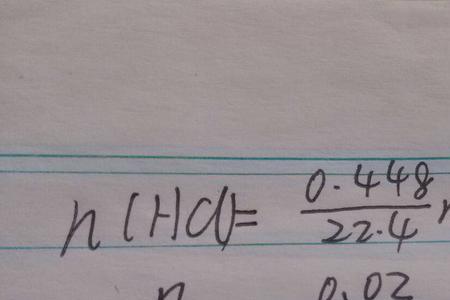 n(HCl)= 0.448/22.4
n 0.02